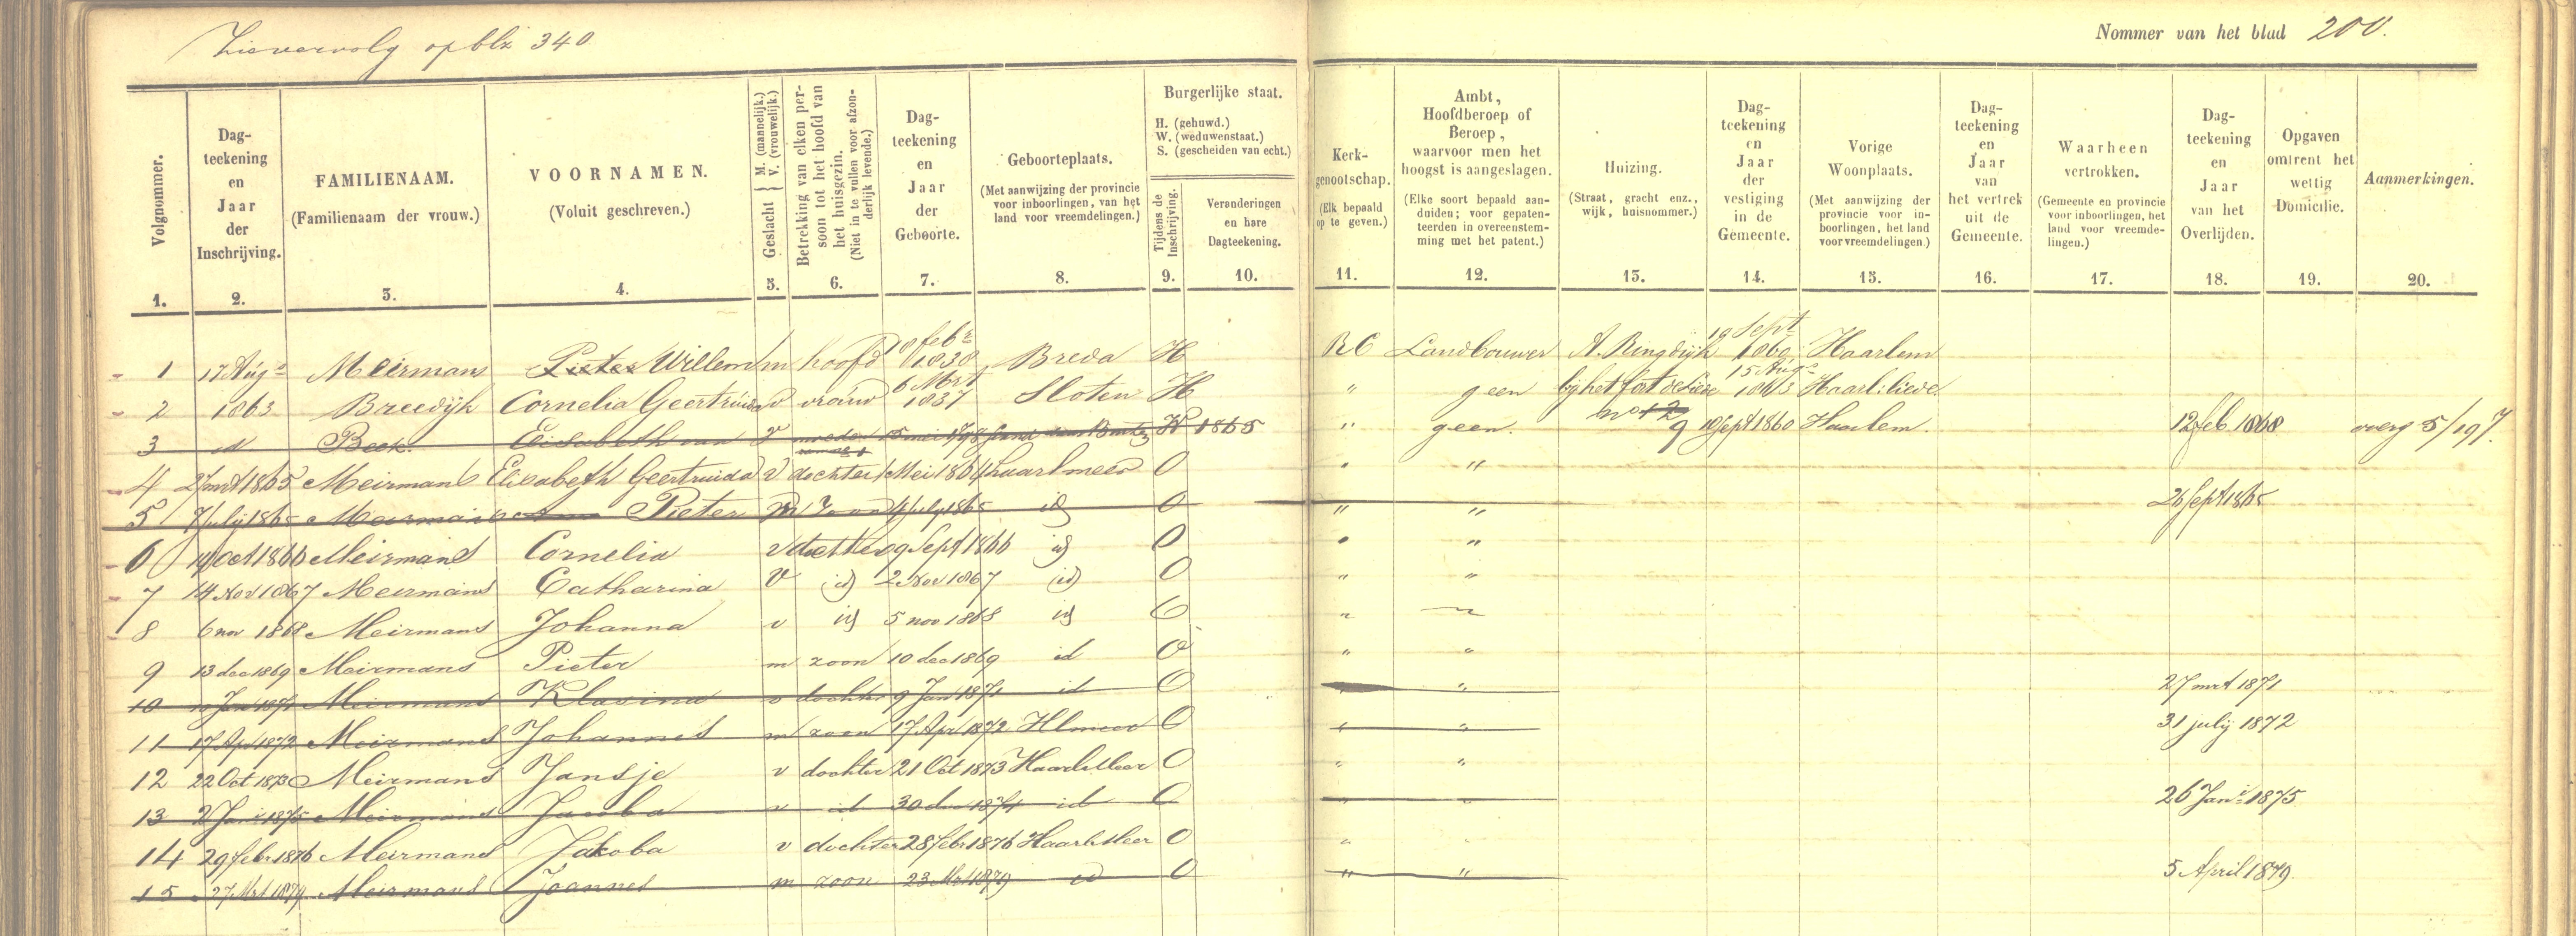 Zie vervolg op blz 340
Nommer van het blad 200.
Volgnommer.
Dag-
teekening
en
Jaar
der
Inschrijving.
FAMILIENAAM.
(Familienaam der vrouw.)
VOORNAMEN.
(Voluit geschreven.)
Geslacht { M. (mannelijk.) V. (vrouwelijk.)
Betrekking van elken per-
soon tot het hoofd van
het huisgezin.
(Niet in te vullen voor afzon-
derlijk levende.)
Dag-
teekening
en
Jaar
der
Geboorte.
Geboorteplaats.
(Met aanwijzing der provincie
voor inboorlingen, van het
land voor vreemdelingen.)
Burgerlijke staat.
H. (gehuwd.)
W. (weduwenstaat.)
S. (gescheiden van echt.)
Tijdens de
Inschrijving.
Veranderingen
en hare
Dagteekening.
Kerk-
genootschap.
(Elk bepaald
op te geven.)
Ambt,
Hoofdberoep of
Beroep,
waarvoor men het
hoogst is aangeslagen.
(Elke soort bepaald aan-
duiden; voor gepaten-
teerden in overeenstem-
ming met het patent.)
Huizing.
(Straat, gracht enz.,
wijk, huisnommer.)
Dag-
teekening
en
Jaar
der
vestiging
in de
Gemeente.
Vorige
Woonplaats.
(Met aanwijzing der
provincie voor in-
boorlingen, het land
voor vreemdelingen.)
Dag-
teekening
en
Jaar
van
het vertrek
uit de
Gemeente.
Waarheen
vertrokken.
(Gemeente en provincie
voor inboorlingen, het
land voor vreemde-
lingen.)
Dag-
teekening
en
Jaar
van het
Overlijden.
Opgaven
omtrent het
wettig
Domicilie.
Aanmerkingen.
1. 2. 3. 4. 5. 6. 7. 8. 9. 10. 11. 12. 13. 14. 15. 16. 17. 18. 19. 20.
1 17 Aug Meirmans Pieter Willem m hoofd 10 febr 1838 Breda H RC Landbouwer A. Ringdijk 19 Sept 1860 Haarlem
2 1863 Breedijk Cornelia Geertruida v vrouw 6 Mrt 1837 Sloten H " geen bij het fort de Liede 15 Aug 1863 Haarl:liede
3 id Beek Elisabeth van V moeder 15 mei 1798 W 1865 " geen no 12 9 19 Sept 1860 Haarlem. 12 feb 1868 overg 5/197.
4 27 mrt 1865 Meirmans Elisabeth Geertruida v dochter 1 Mei 1864 Haarlmeer O " "
5 7 july 1865 Meirmans Pieter m zoon 4 july 1865 id O " " 26 Sept 1865
6 14 Oct 1866 Meirmans Cornelia v dochter 9 Sept 1866 id O " "
7 14 Nov 1867 Meirmans Catharina V id 2 Nov 1867 id O " "
8 6 nov 1868 Meirmans Johanna v id 5 nov 1868 id O " "
9 13 dec 1869 Meirmans Pieter m zoon 10 dec 1869 id O " "
10 10 Jan 1871 Meirmans Klasina v dochter 9 Jan 1871 id O " " 27 mrt 1871
11 17 Apr 1872 Meirmans Johannes m zoon 17 Apr 1872 Hlmeer O " " 31 july 1872
12 22 Oct 1873 Meirmans Jansje v dochter 21 Oct 1873 HaarlMeer O " "
13 2 Jan 1875 Meirmans Jacoba v id 30 dec 1874 id O " " 26 Jani 1875
14 29 febr 1876 Meirmans Jakoba v dochter 28 febr 1876 HaarlMeer O " "
15 27 Mrt 1879 Meirmans Joannes m zoon 23 Mrt 1879 id O " " 5 April 1879.